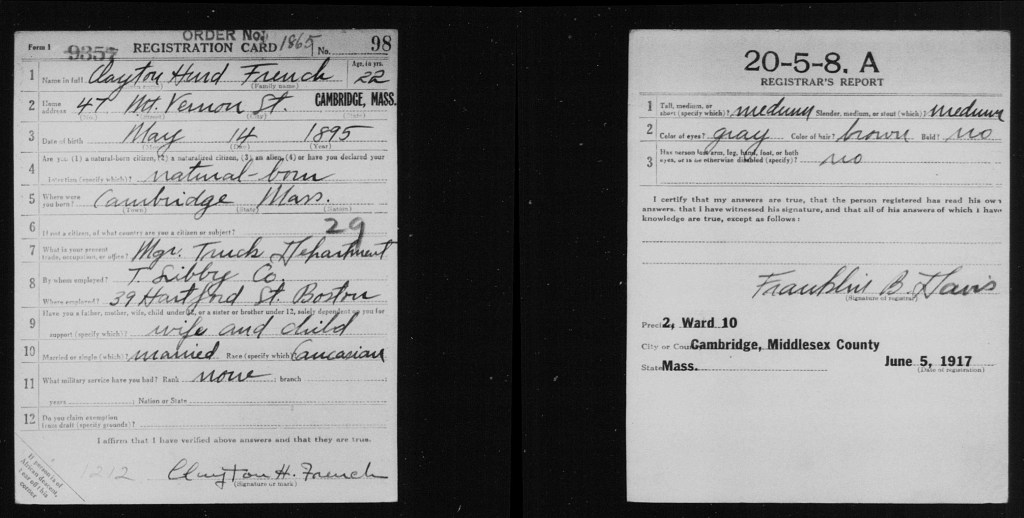 ORDER No.
Form 1 9357 REGISTRATION CARD 1865 No. 98
1 Name in full Clayton Hurd French Age, in yrs. 22
(Family name)
2 Home address 47 Mt. Vernon St. CAMBRIDGE, MASS.
(No.) (Street) (City) (State)
3 Date of birth May 14 1895
(Month) (Day) (Year)
4 Are you (1) a natural-born citizen, (2) a naturalized citizen, (3) an alien, (4) or have you declared your
intention (specify which)? natural-born
5 Where were you born? Cambridge Mass.
(Town) (State) (Nation)
29
6 If not a citizen, of what country are you a citizen or subject?
7 What is your present trade, occupation, or office? Mgr. Truck Department
8 By whom employed? T. Libby Co.
Where employed? 39 Hartford St. Boston
9 Have you a father, mother, wife, child under 12, or a sister or brother under 12, solely dependent on you for
support (specify which)? wife and child
10 Married or single (which)? married Race (specify which)? Caucasian
11 What military service have you had? Rank none ; branch
years ; Nation or State
12 Do you claim exemption
from draft (specify grounds)?
I affirm that I have verified above answers and that they are true.
1212 Clayton H. French
(Signature or mark)
If person is of
African descent,
tear off this
corner
20-5-8. A
REGISTRAR'S REPORT
1 Tall, medium, or
short (specify which)? medium Slender, medium, or stout (which)? medium
2 Color of eyes? gray Color of hair? brown Bald? no
3 Has person lost arm, leg, hand, foot, or both
eyes, or is he otherwise disabled (specify)? no
I certify that my answers are true, that the person registered has read his own
answers, that I have witnessed his signature, and that all of his answers of which I have
knowledge are true, except as follows:
Franklin B. Davis
(Signature of registrar)
Precinct 2, Ward 10
City or County Cambridge, Middlesex County
State Mass. June 5, 1917
(Date of registration)